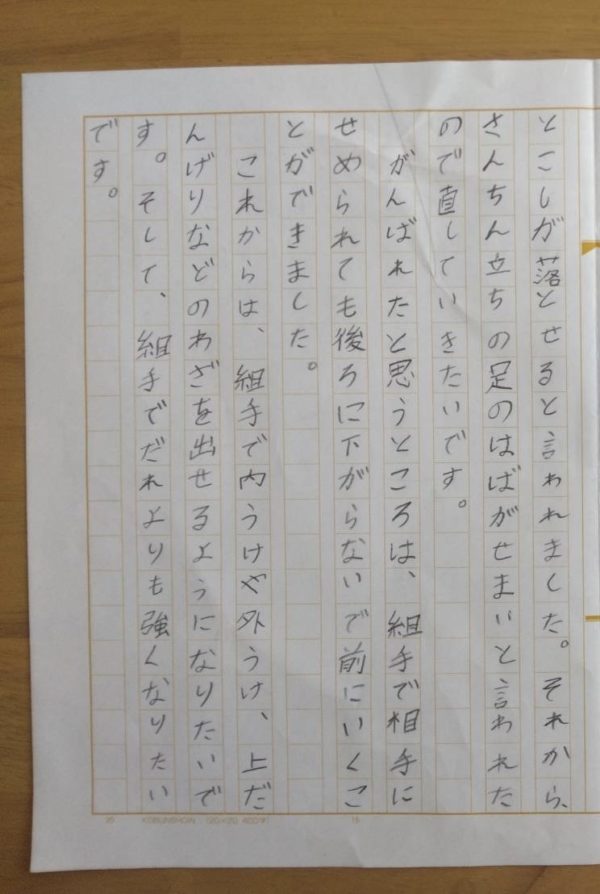 とこしが落とせると言われました。それから、
さんちん立ちの足のはばがせまいと言われた
ので直していきたいです。
がんばれたと思うところは、組手で相手に
せめられても後ろに下がらないで前にいくこ
とができました。
これからは、組手で内うけや外うけ、上だ
んげりなどのわざを出せるようになりたいで
す。そして、組手でだれよりも強くなりたい
です。